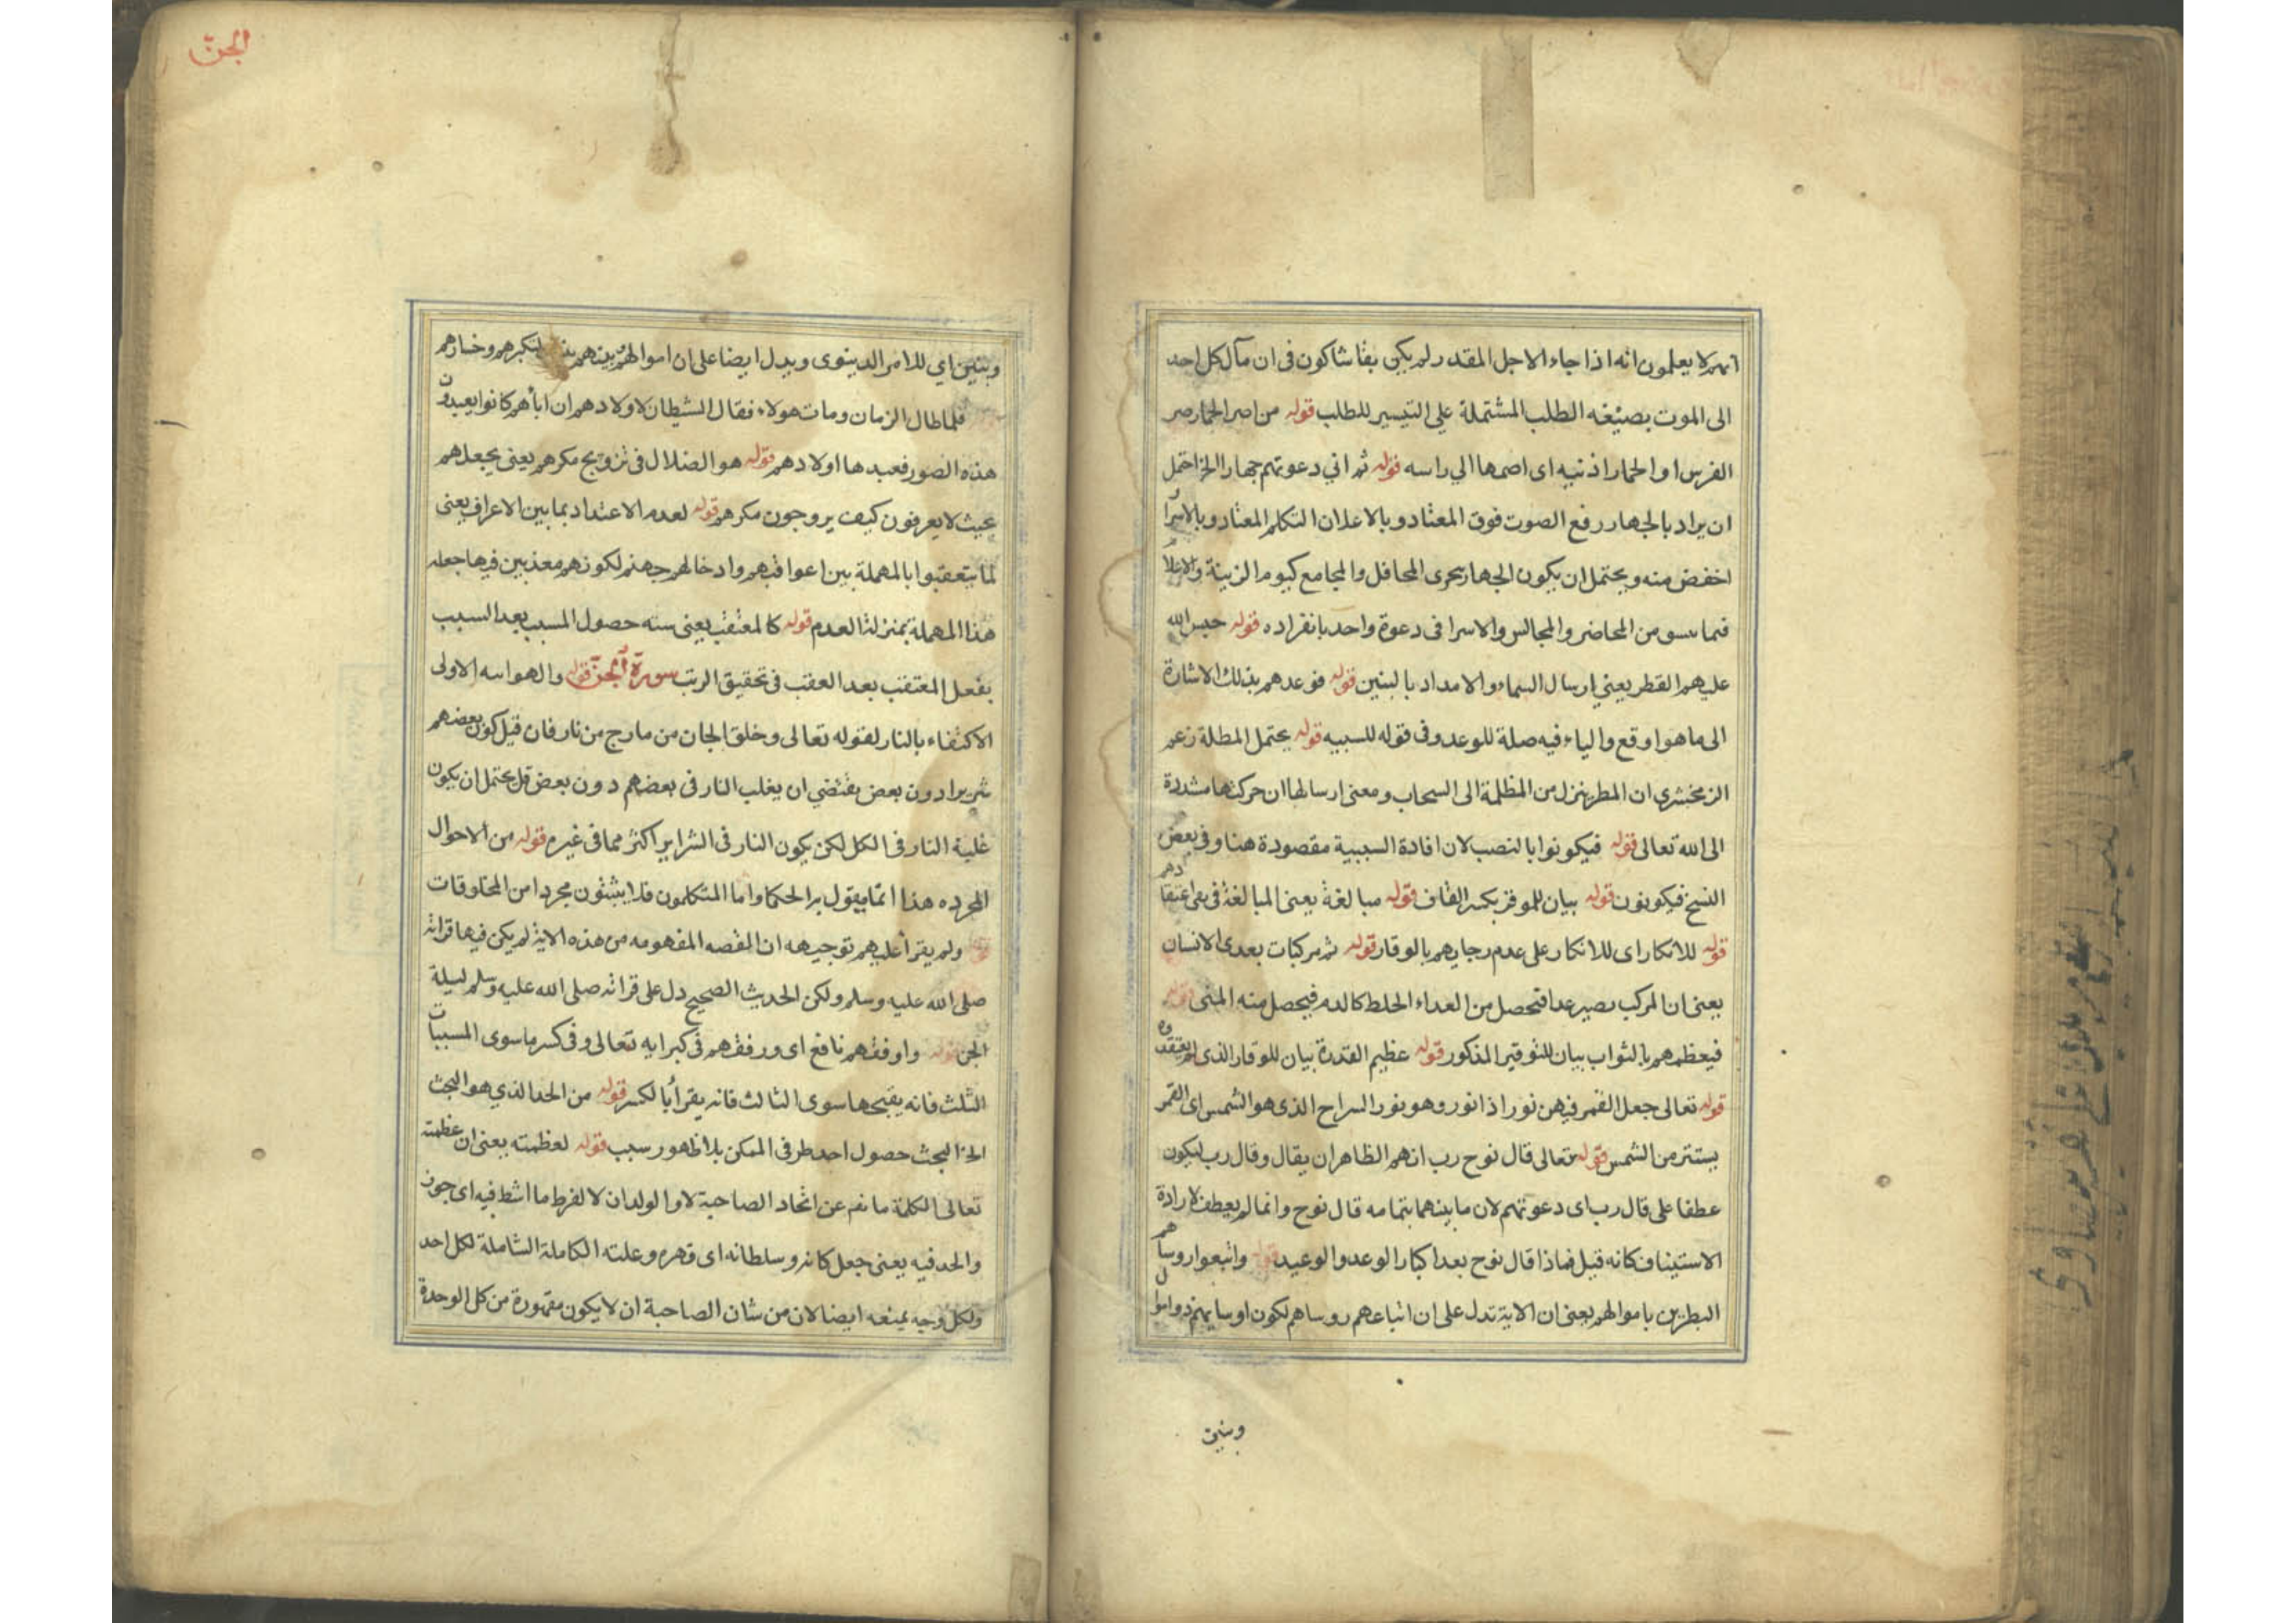 انهم لا يعلمون انه اذا جاء الاجل المقدر لم يكن بقا شاكون فى ان مآل كل احد
الى الموت بصيغه الطلب المشتملة على التيسير للطلب قوله من اصر الحمار صر
الفرس او الحمار اذنيه اى اصمها الي راسه قوله ثم اني دعوتهم جهارا الخ احتمل
ان يراد بالجهار رفع الصوت فوق المعتاد وبالاعلان التكلم المعتاد وبالاسرا
اخفض منه ويحتمل ان يكون الجهار بحرى المحافل والمجامع كيوم الزينة والاعلا
فيما من المحاضر والمجالس والاسرا فى دعوة واحد بانفراده قوله حبس الله
عليهم القطر يعني ارسال السماء والامداد بالبنين قوله فوعدهم بذلك الاشارة
الى ما هو اوقع والياء فيه صلة للوعد وفى قوله للسببيه قوله يحتمل المظلة زعم
الزمخشرى ان المطر ينزل من المظلمة الى السحاب ومعنى ارسالها ان حركتها مشددة
الى الله تعالى قوله فيكونوا بالنصب لان افادة السببية مقصودة هنا وفى بعض
النسخ فيكونون قوله بيان للموقر بكسر القاف قوله مبالغة يعنى المبالغة فى اعتقادهم
قوله للانكار اى للانكار على عدم رجايهم بالوقار قوله ثم مركبات بعدى الانسان
يعنى ان المركب يصير عدا فتحصل من العداء الخلط كالدم فيحصل منه المنى قوله
فيعظمهم بالثواب بيان للتوقير المذكور قوله عظيم القدرة بيان للوقار الذى لم يعتقدوه
قوله تعالى جعل القمر فيهن نورا ذا نور وهو نور السراج الذى هو الشمس اى القمر
يستتر من الشمس قوله تعالى قال نوح رب انهم الظاهر ان يقال وقال رب ليكون
عطفا على قال رب اى دعوتهم لان ما بينهما بتمامه قال نوح وانما لم يعطف لارادة
الاستيناف كانه قيل فماذا قال نوح بعد اكبار الوعد والوعيد قوله واتبعوا روساهم
البطرين باموالهم يعنى ان الاية تدل على ان اتباعهم روساهم لكون روسايهم ذو اموال
وبنين
الجن
وبنين اي للامر الدينوى ويدل ايضا على ان اموالهم لتكبرهم وخسارهم
فلما طال الزمان ومات هولاء فقال الشيطان لاولادهم ان ابائهم كانوا يعبدون
هذه الصور فعبدها اولادهم قوله هو الضلال فى تزويج مكرهم يعنى يجعلهم
بحيث لا يعرفون كيف يروجون مكرهم قوله لعدم الاعتداد بما بين الاعراق يعنى
لما يتعقبوا بالمهملة بين اعواقبهم وادخالهم جهنم لكونهم معذبين فيها جعله
هذا المهملة بمنزلة العدم قوله كالمعتقب يعنى حصول المسبب بعد السبب
بفعل المعتقب بعد العقب فى تحقيق الرتب سورة الجن قوله والهواسه الاولى
الاكتفاء بالنار لقوله تعالى وخلق الجان من مارج من نار فان قيل كون بعضهم
شريرا دون بعض يقتضي ان يغلب النار فى بعضهم دون بعض قل يحتمل ان يكون
غلبة النار فى الكل لكن يكون النار فى الشراير اكثر مما فى غيره قوله من الاحوال
المجرده هذا انما يقول برا الحكما واما المتكلمون فلا يثبتون مجردا من المخلوقات
ولم يقرأ عليهم توجيهه ان القصه المفهومه من هذه الاية لم يكن فيها قراته
صلى الله عليه وسلم ولكن الحديث الصحيح دل على قراته صلى الله عليه وسلم ليلة
الجن قوله واوفقهم نافع اى ورفقهم فى كبرايه تعالى وفى كسر ما سوى المسببات
الثلث فانه يفتحها سوى الثالث فانه يقرأ بالكسر قوله من الحد الذي هو البحث
الخ البحث حصول احد طرفى الممكن بلا ظهور سبب قوله لعظمته يعنى ان عظمته
تعالى الكلمة عن اتخاد الصاحبة لا والولدان لا لفرط ما اشط فيه اى جوز
والحد فيه يعنى جعل كانه وسلطانه اى قهره وعلته الكاملة الشاملة لكل احد
ولكل وجه يمنعه ايضا لان من شان الصاحبة ان لا يكون مقهورة من كل الوحدة